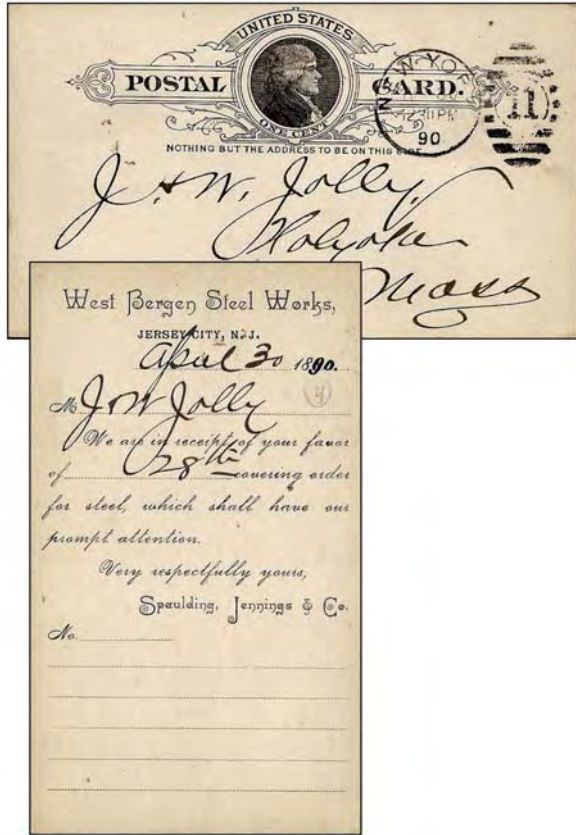 UNITED STATES
POSTAL CARD.
ONE CENT
NOTHING BUT THE ADDRESS TO BE ON THIS SIDE
NEW YORK
30
12 30 PM
90
11
J. & W. Jolly,
Holyoke
Mass
West Bergen Steel Works,
JERSEY CITY, N.J.
April 30 1890.
M J & W Jolly
4
We are in receipt of your favor
of 28th covering order
for steel, which shall have our
prompt attention.
Very respectfully yours,
Spaulding, Jennings & Co.
No.